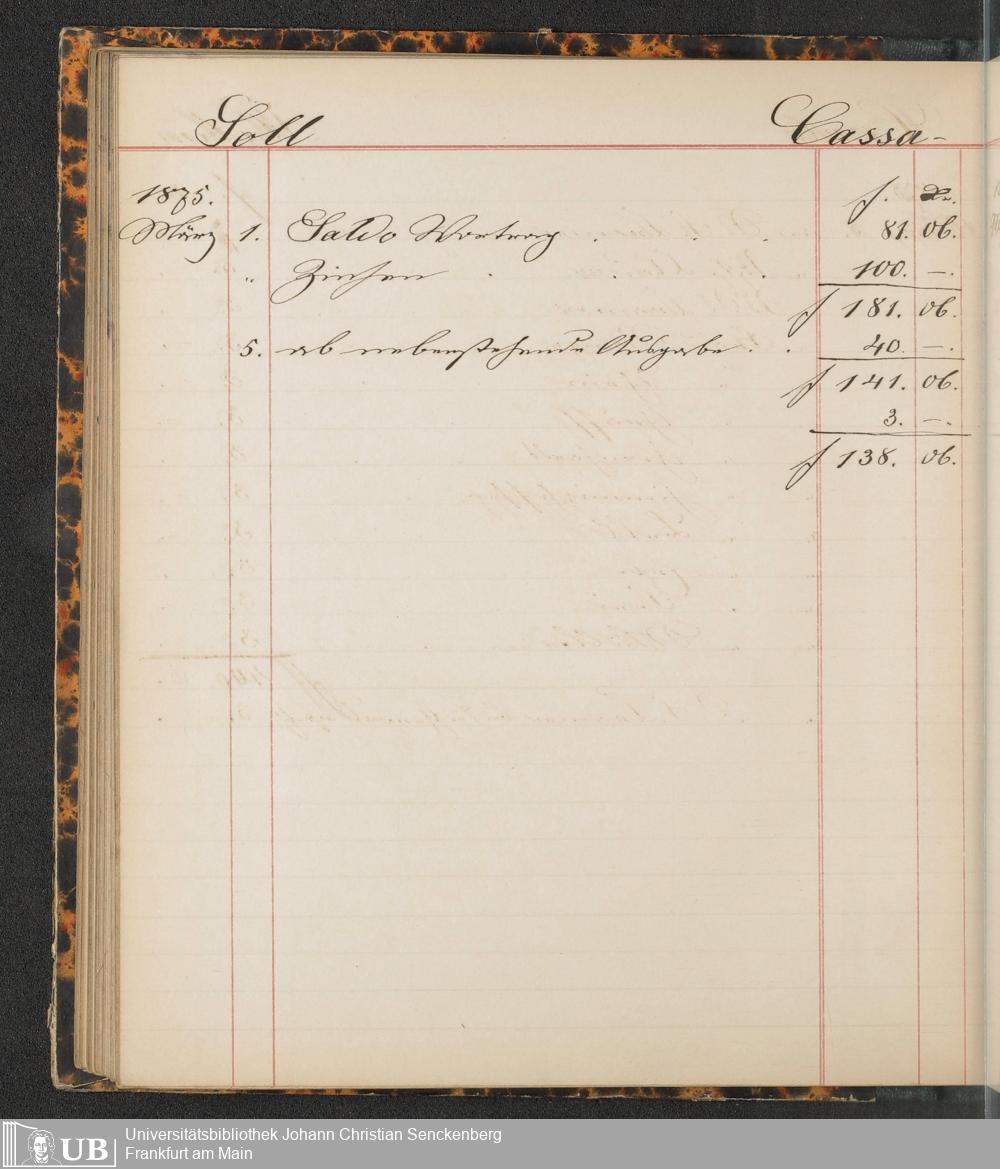 Soll Cassa-
1875. f. Xr.
März 1. Saldo Vortrag . . . 81. 06.
" Zinsen . . . 100. —.
f 181. 06.
5. ab nebenstehende Ausgabe . . 40. —.
f 141. 06.
3. —.
f 138. 06.
UB Universitätsbibliothek Johann Christian Senckenberg
Frankfurt am Main